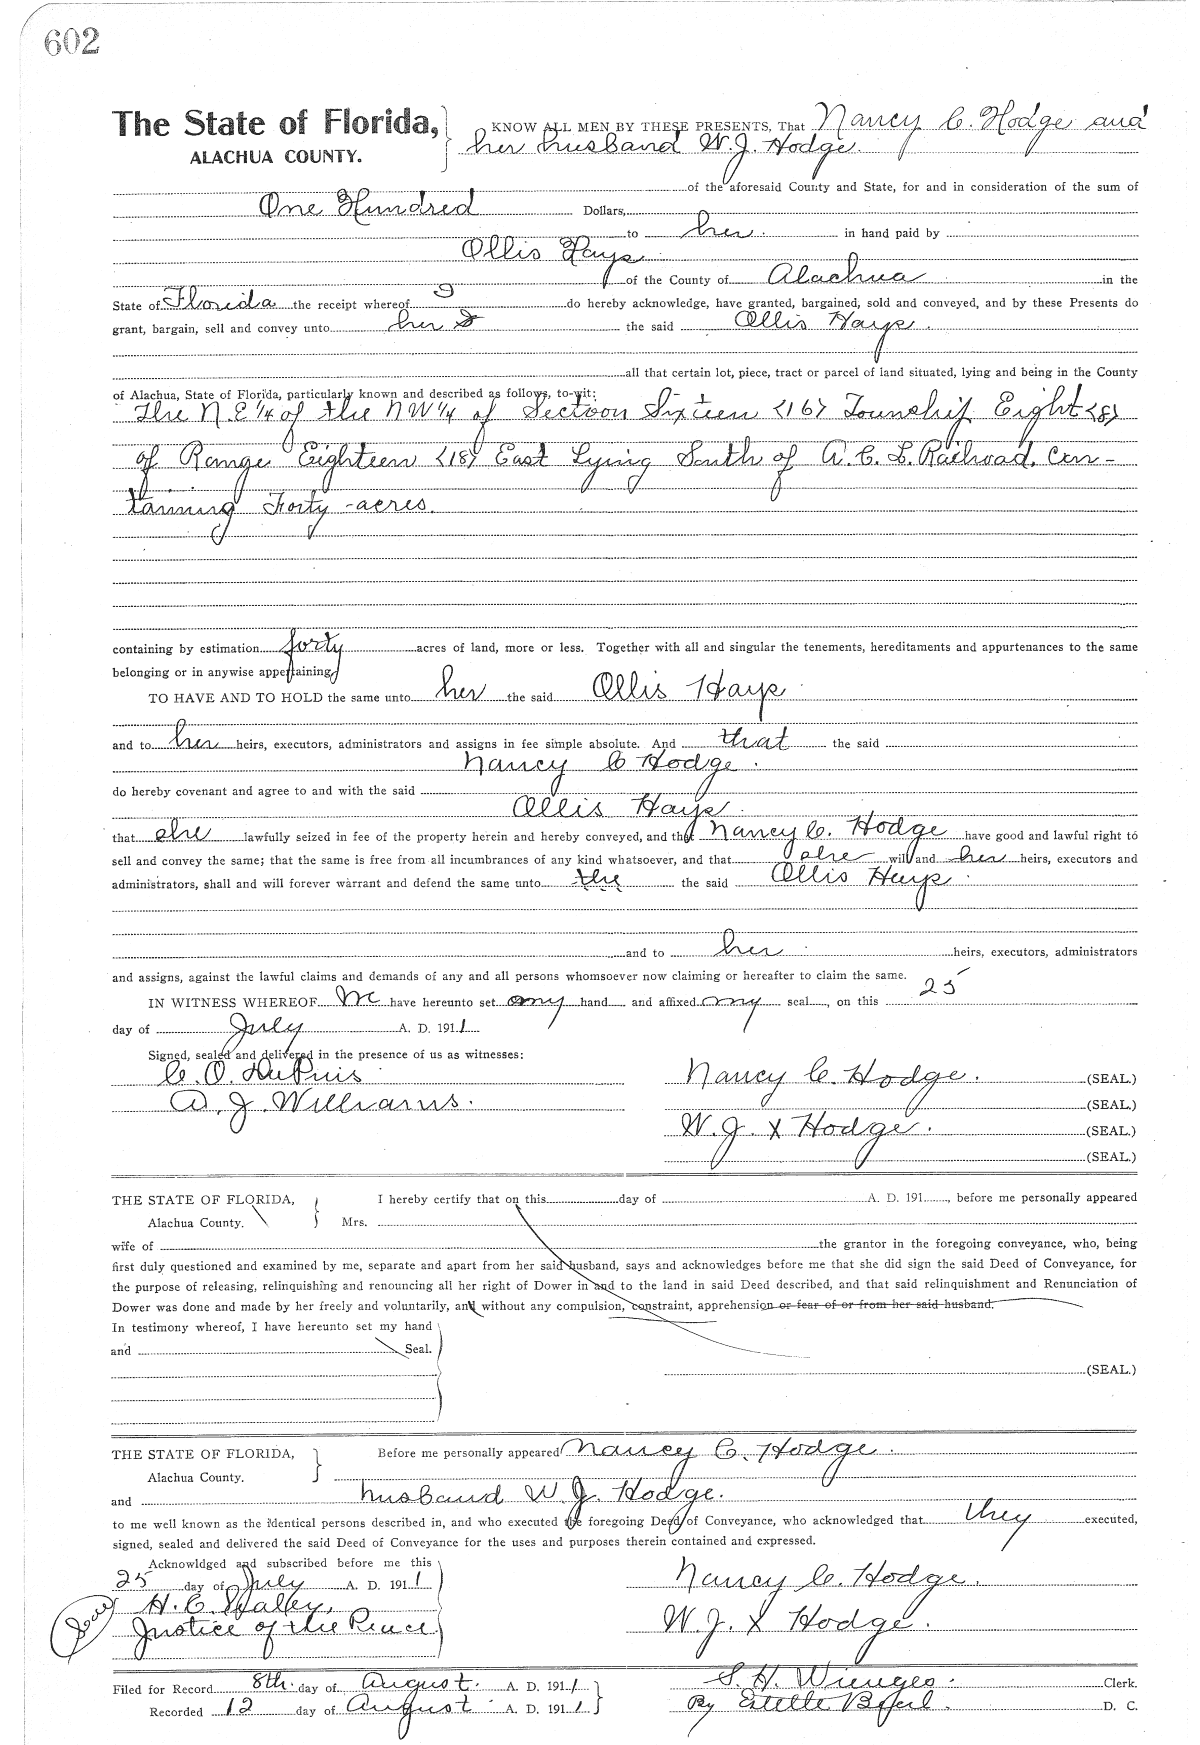 602
The State of Florida, KNOW ALL MEN BY THESE PRESENTS, That Nancy C. Hodge and
ALACHUA COUNTY. her husband W. J. Hodge.
of the aforesaid County and State, for and in consideration of the sum of
One Hundred Dollars,
to her in hand paid by
Ollis Hays
of the County of Alachua in the
State of Florida the receipt whereof do hereby acknowledge, have granted, bargained, sold and conveyed, and by these Presents do
grant, bargain, sell and convey unto her the said Ollis Hays.
all that certain lot, piece, tract or parcel of land situated, lying and being in the County
of Alachua, State of Florida, particularly known and described as follows, to-wit:
The N.E 1/4 of the NW 1/4 of Section Sixteen <16> Township Eight <8>
of Range Eighteen <18> East Lying South of A. C. L. Railroad. Con-
tanning Forty-acres.
containing by estimation forty acres of land, more or less. Together with all and singular the tenements, hereditaments and appurtenances to the same
belonging or in anywise appertaining.
TO HAVE AND TO HOLD the same unto her the said Ollis Hays
and to her heirs, executors, administrators and assigns in fee simple absolute. And that the said
Nancy C Hodge.
do hereby covenant and agree to and with the said
Ollis Hays.
that she lawfully seized in fee of the property herein and hereby conveyed, and that Nancy C. Hodge have good and lawful right to
sell and convey the same; that the same is free from all incumbrances of any kind whatsoever, and that she will and her heirs, executors and
administrators, shall and will forever warrant and defend the same unto the the said Ollis Hays.
and to her heirs, executors, administrators
and assigns, against the lawful claims and demands of any and all persons whomsoever now claiming or hereafter to claim the same.
IN WITNESS WHEREOF have hereunto set my hand and affixed my seal, on this 25
day of July A. D. 1911
Signed, sealed and delivered in the presence of us as witnesses:
C. O. DuPuis Nancy C. Hodge. (SEAL.)
A. J. Williams. (SEAL.)
W. J. X Hodge. (SEAL.)
(SEAL.)
THE STATE OF FLORIDA, I hereby certify that on this day of A. D. 191, before me personally appeared
Alachua County. Mrs.
wife of the grantor in the foregoing conveyance, who, being
first duly questioned and examined by me, separate and apart from her said husband, says and acknowledges before me that she did sign the said Deed of Conveyance, for
the purpose of releasing, relinquishing and renouncing all her right of Dower in and to the land in said Deed described, and that said relinquishment and Renunciation of
Dower was done and made by her freely and voluntarily, and without any compulsion, constraint, apprehension or fear of or from her said husband.
In testimony whereof, I have hereunto set my hand
and Seal.
(SEAL.)
THE STATE OF FLORIDA, Before me personally appeared Nancy C. Hodge.
Alachua County.
and husband W. J. Hodge.
to me well known as the identical persons described in, and who executed the foregoing Deed of Conveyance, who acknowledged that they executed,
signed, sealed and delivered the said Deed of Conveyance for the uses and purposes therein contained and expressed.
Acknowldged and subscribed before me this
25 day of July A. D. 1911 Nancy C. Hodge.
H. C.
Justice of the Peace W. J. X Hodge.
Filed for Record 8th. day of August. A. D. 1911 S. H. Wienges. Clerk.
Recorded 12 day of August A. D. 1911 By Estelle D. C.